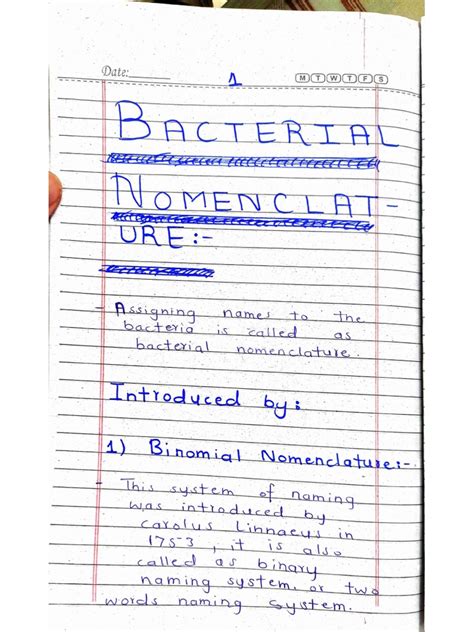 Date:
1
M T W T F S
BACTERIAL
NOMENCLAT-
URE:-
- Assigning names to the
bacteria is called as
bacterial nomenclature.
Introduced by:
1) Binomial Nomenclature:-
- This system of naming
was introduced by
Carolus Linnaeus in
1753, it is also
called as binary
naming system, or two
words naming system.